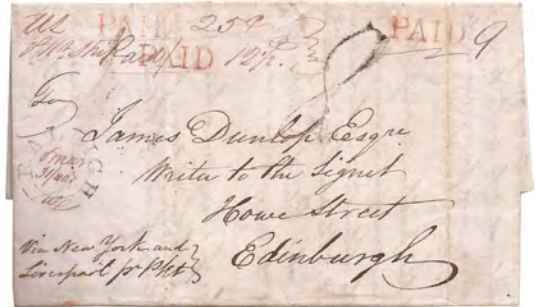 US PAID 25c PAID 9
Paid PAID 12½.
To
James Dunlop Esqre
Writer to the Signet
Howe Street
Edinburgh
Via New York and
Liverpool pr Pkt